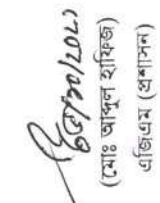 (মোঃ আব্দুল হাফিজ)
এজিএম (প্রশাসন)